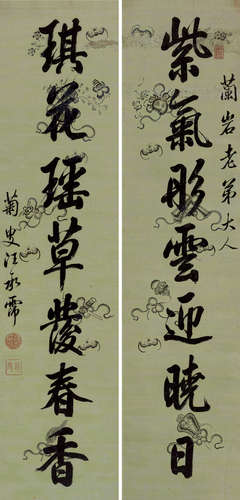 蘭岩老弟大人
紫氣彤雲迎曉日
琪花瑶草發春香
菊叟汪承霈